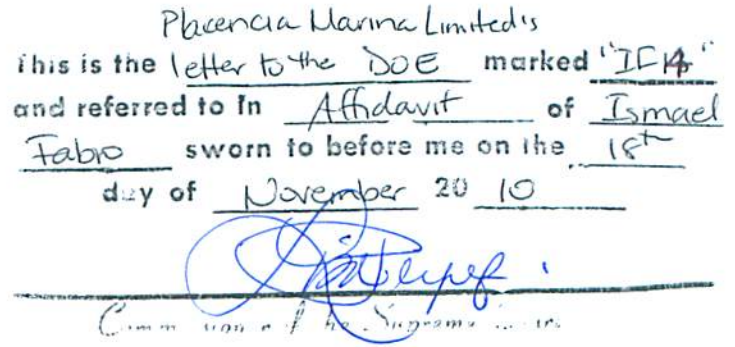 Placencia Marina Limited's
This is the letter to the DOE marked "IF4"
and referred to in Affidavit of Ismael
Fabro sworn to before me on the 18th
day of November 20 10